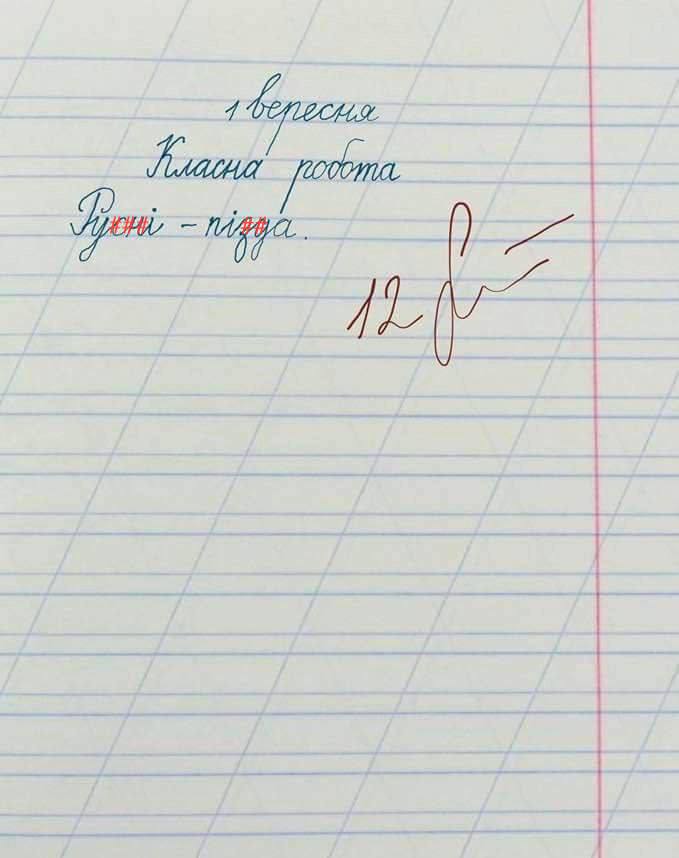 1 вересня
Класна робота
Ру###і - пі##а.
12